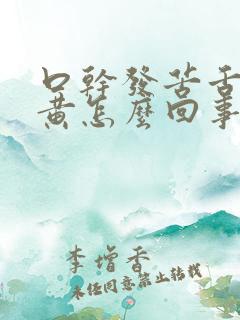 口幹發苦舌
黃怎麼回事
李增香
未经同意禁止转载